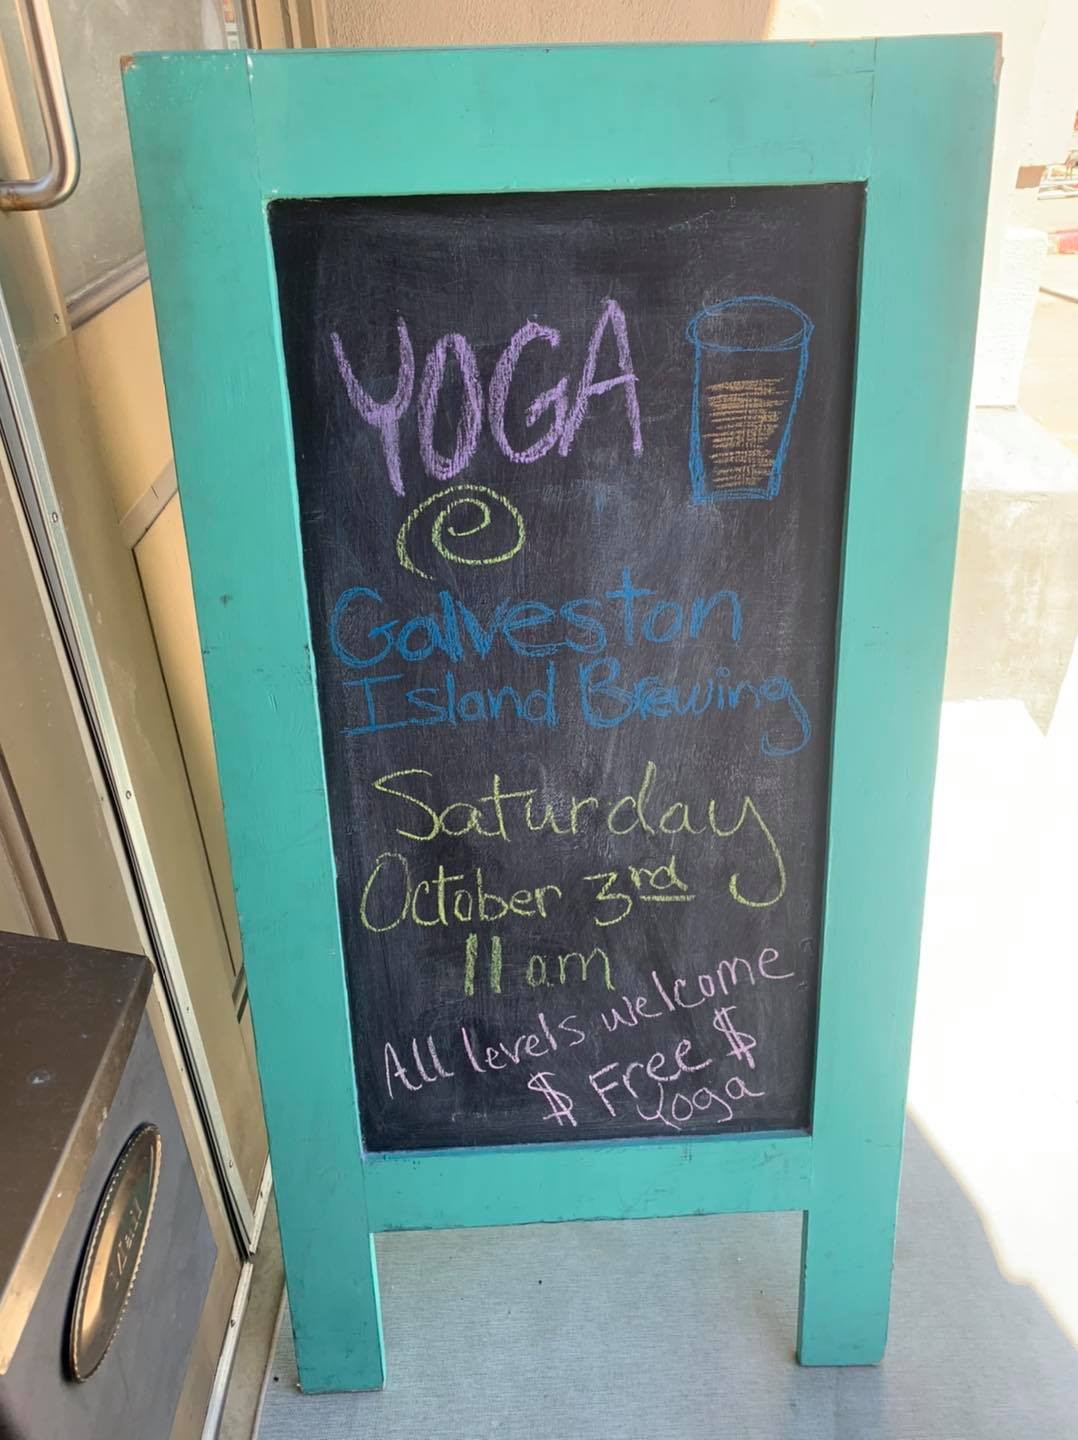 YOGA
@
Galveston
Island Brewing
Saturday
October 3rd
11am
All levels welcome
$ Free $
yoga